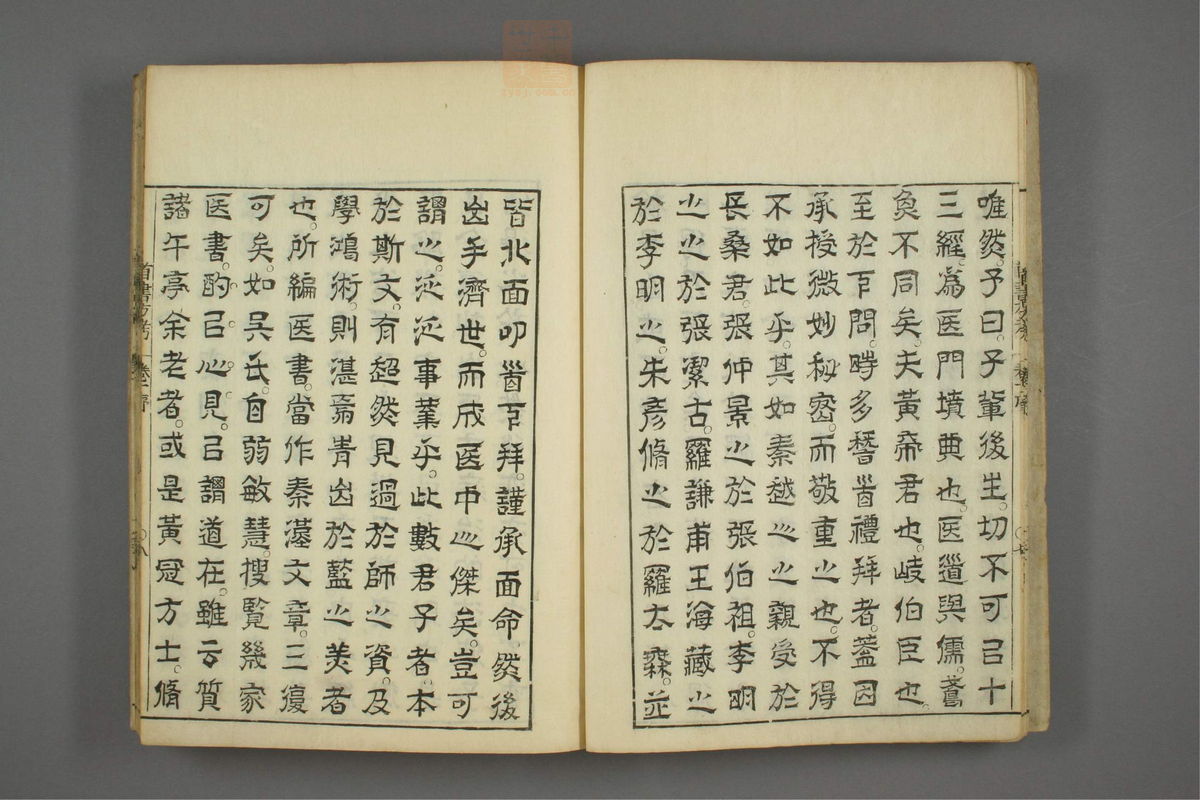 唯然。予曰。子輩後生。切不可㠯十
三經。爲医門墳典也。医道與儒。
不同矣。夫黃帝君也。岐伯臣也。
至於下問。時多稽首禮拜者。蓋因
承授微妙秘密。而敬重之也。不得
不如此乎。其如秦越人之親受於
長桑君。張仲景之於張伯祖。李明
之之於張潔古。羅謙甫王海藏之
於李明之。朱彥脩之於羅太無。並
皆北面叩首下拜。謹承面命。然後
出乎濟世。而成医中之傑矣。豈可
謂之泛泛事業乎。此數君子者。本
於斯文。有超然見過於師之資。及
學鴻術。則湛爲青出於藍之美者
也。所編医書。當作秦漢文章。三復
可矣。如吳氏。自弱敏慧。搜覽幾家
医書。酌㠯心見。㠯謂道在。雖云質
諸午亭余老者。或是黃冠方士。脩
首書方考 卷一序 八